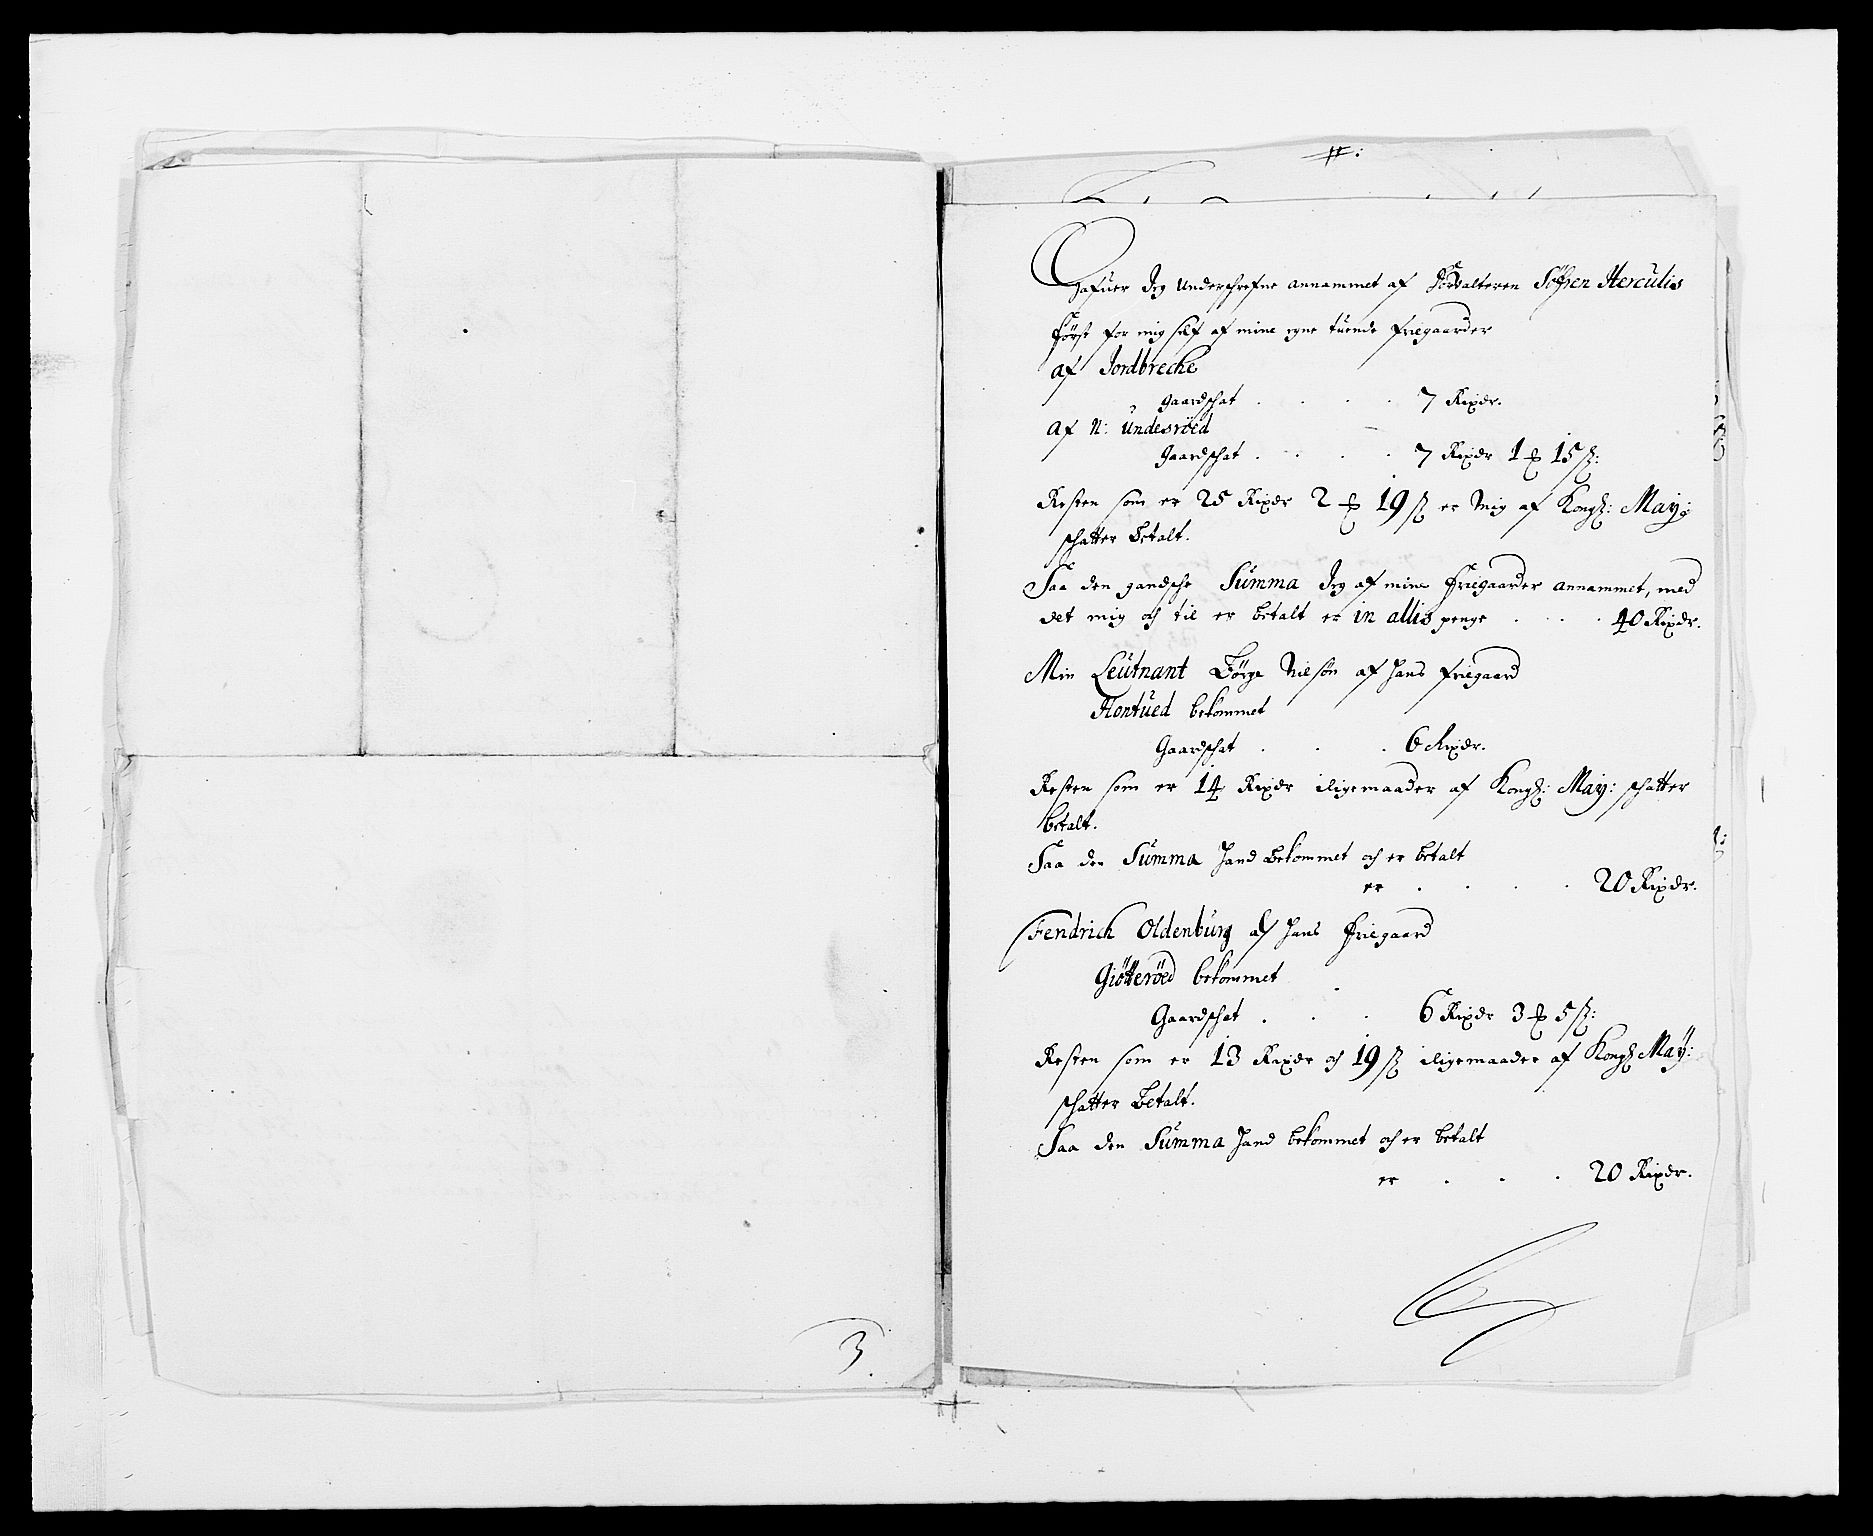 #:
Hafuer Jeg underschrefne annammet af Forvalteren Söfren Herculis
först for mig self af mine egne tuende friegaarder
af Jordbrecke
gaardschat . . . . 7 Rixdr.
af N: Undesröed
gaardschat . . . . 7 Rixdr 1 ℔ 15 ß:
Resten som er 25 Rixdr 2 ℔ 19 ß er mig af Kongl: May:
schatter betalt.
Saa den gandsche Summa Jeg af mine friegaarder annammet, med
det mig och til er betalt er in allis penge . . . . 40 Rixdr.
Min Leutnant Börge Nielsön af hans friegaard
Hontued bekommet
Gaardschat . . . 6 Rixdr.
Resten som er 14 Rixdr iligemaader af Kongl: May: schatter
betalt.
Saa den Summa hand bekommet och er betalt
er . . . . 20 Rixdr.
Fendrich Oldenburg af hans friegaard
Giötteröed bekommet
Gaardschat . . . 6 Rixdr 3 ℔ 5 ß:
Resten som er 13 Rixdr och 19 ß iligemaader af Kongl May:
schatter betalt.
Saa den Summa hand bekommet och er betalt
er . . . 20 Rixdr.
3.